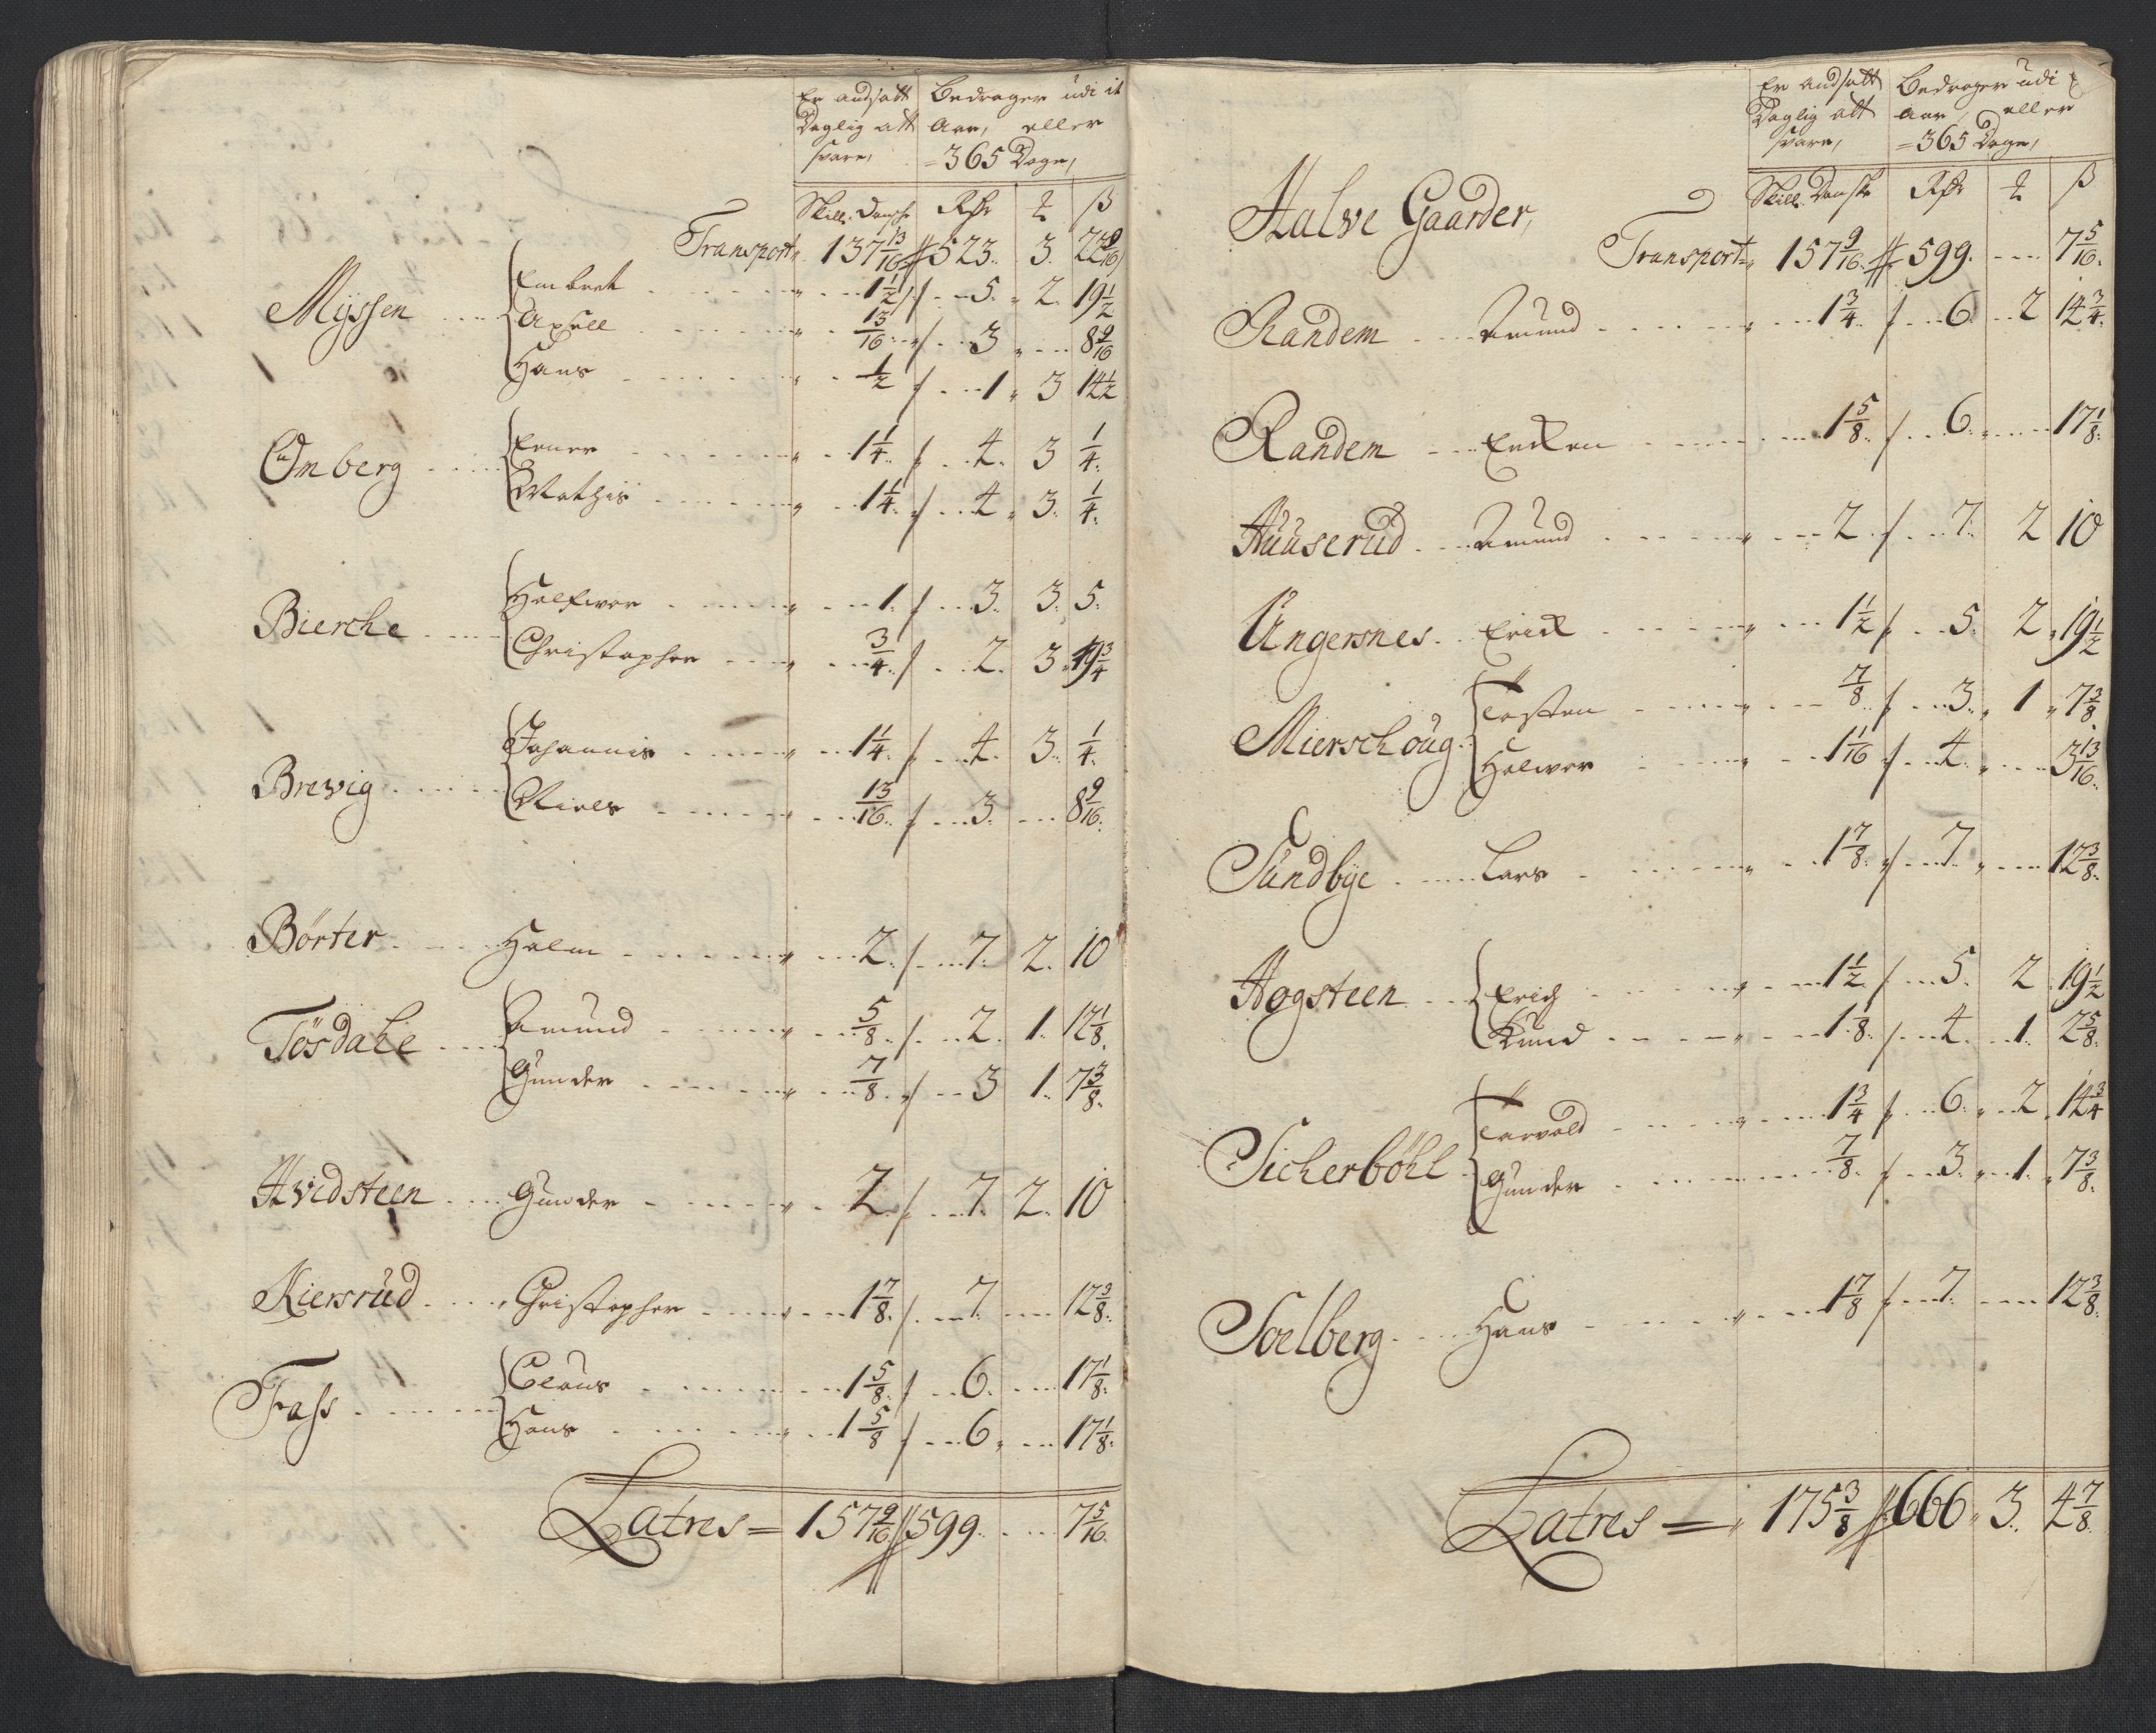 Er andsatt Bedrager udi it
Daglig att Aar, eller
svare, = 365 Dage,
Skill. Dansche Rdr 2 β
Transport 137 13/16 523 3 22 9/16
Myssen Embret 1 1/2 5 2 19 1/2
Axell 13/16 3 8 9/16
Hans 1/2 1 3 14 1/2
Omberg Erner 1 1/4 4 3 1/4
Mathis 1 1/4 4 3 1/4
Bierche Halfwor 1 3 3 5
Christopher 3/4 2 3 9 3/4
Brevig Johannis 1 1/4 4 3 1/4
Niels 13/16 3 8 9/16
Börter Holm 2 7 2 10
Tösdale Amund 5/8 2 1 12 1/8
Gunder 7/8 3 1 7 3/8
Hvidsteen Gunder 2 7 2 10
Kiersrud Christopher 1 7/8 7 12 3/8
Fass Claus 1 5/8 6 17 1/8
Hans 1 5/8 6 17 1/8
Latres = 157 9/16 599 7 5/16
Er andsatt Bedrager udi
Daglig att Aar, eller
svare, = 365 Dage,
Skill. Danske Rdr 2 β
Halve Gaarder,
Transport 157 9/16 599 7 5/16
Randem Amund 1 3/4 6 2 14 3/4
Randem Encken 1 5/8 6 17 1/8
Huuserud Amund 2 7 2 10
Ungersnes Erick 1 1/2 5 2 19 1/2
Mierschoug Tosten 7/8 3 1 7 3/8
Halwor 1 1/16 4 3 13/16
Sundbye Lars 1 7/8 7 12 3/8
Hogsteen Erich 1 1/2 5 2 19 1/2
Knud 1 1/8 4 1 2 5/8
Sicherböhl Tarvald 1 3/4 6 2 14 3/4
Gunder 7/8 3 1 7 3/8
Soelberg Hans 1 7/8 7 12 3/8
Latres = 175 3/8 666 3 4 7/8